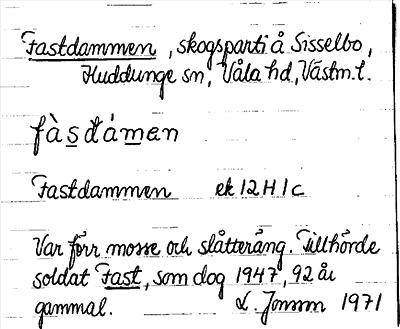 Fastdammen, skogsparti å Sisselbo,
Huddunge sn, Våla hd, Västm.l.
fàs̲đám̲en
Fastdammen ek 12 H 1 c
Var förr mosse och slåtteräng. Tillhörde
soldat Fast, som dog 1947, 92 år
gammal. L. Jonsson 1971